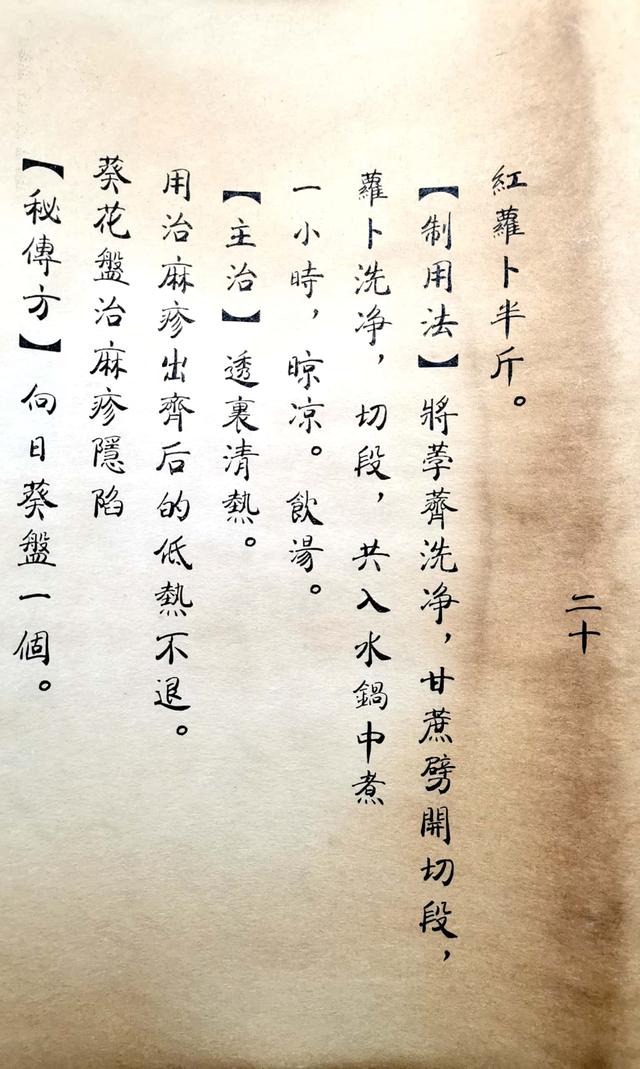 二十
紅蘿卜半斤。
【制用法】將荸薺洗净，甘蔗劈開切段，
蘿卜洗净，切段，共入水鍋中煮
一小時，晾凉。飲湯。
【主治】透裏清熱。
用治麻疹出齊后的低熱不退。
葵花盤治麻疹隱陷
【秘傳方】向日葵盤一個。